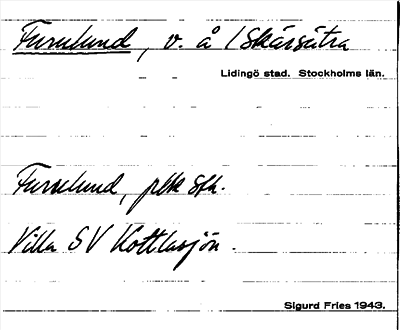 Furulund, v. å 1 Skärsätra
Lidingö stad. Stockholms län.
Furulund, plk Sfk.
Villa SV Kottlasjön.
Sigurd Fries 1943.